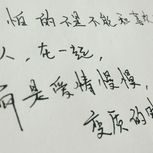 怕的不是不能和喜
人，在一起，
而是爱情慢慢，
变质的